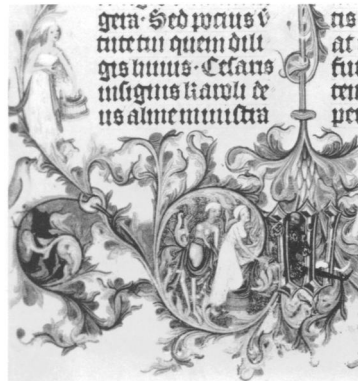 gera· Sed pocius v̄
tute tui quem dili
gis huius· Cesaris
insignis karoli de
us alme ministra
tis
at